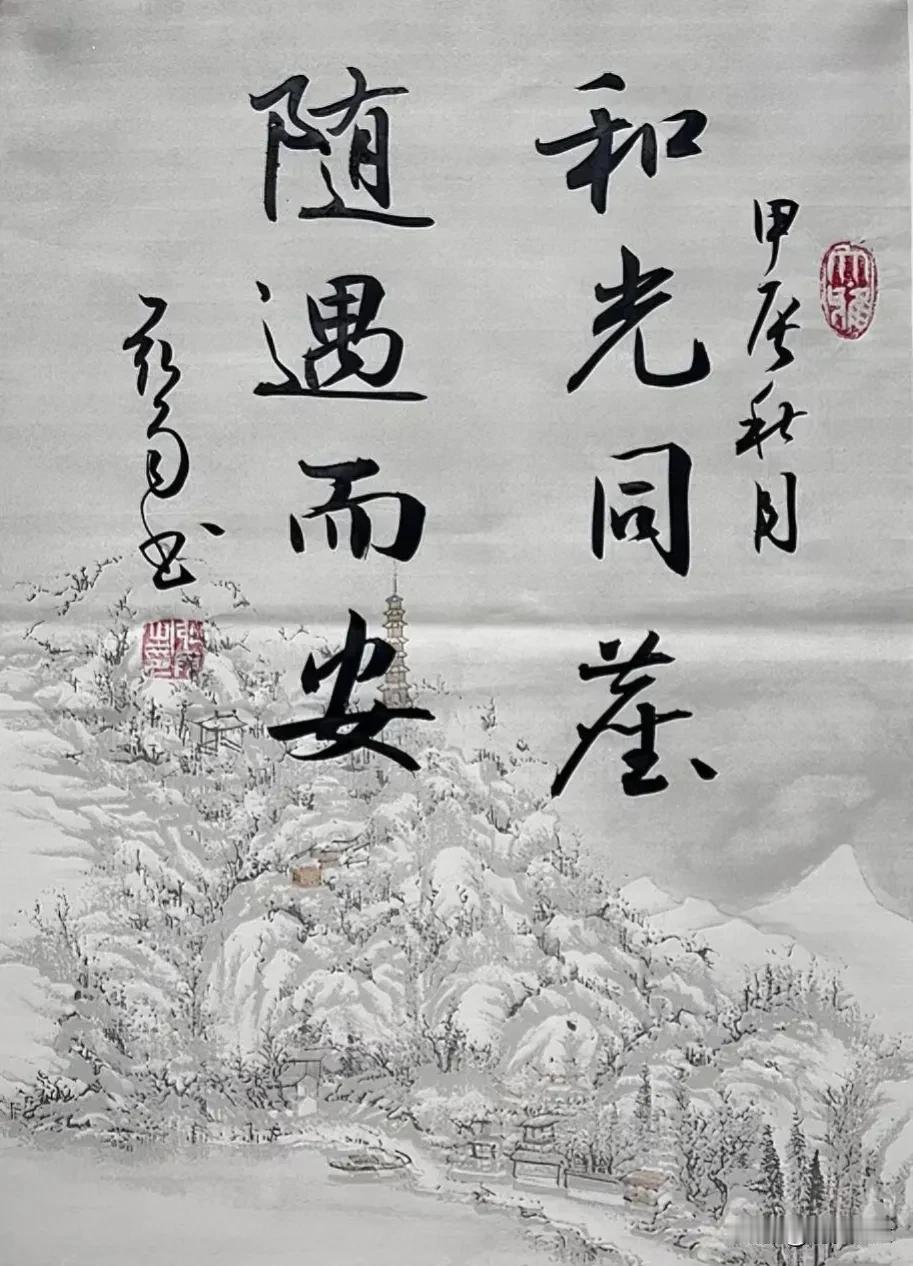 甲辰秋月
和光同塵
随遇而安
书